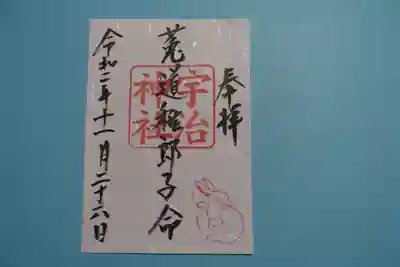 奉拝
菟道稚郎子命
宇治
神社
令和二年十一月二十六日